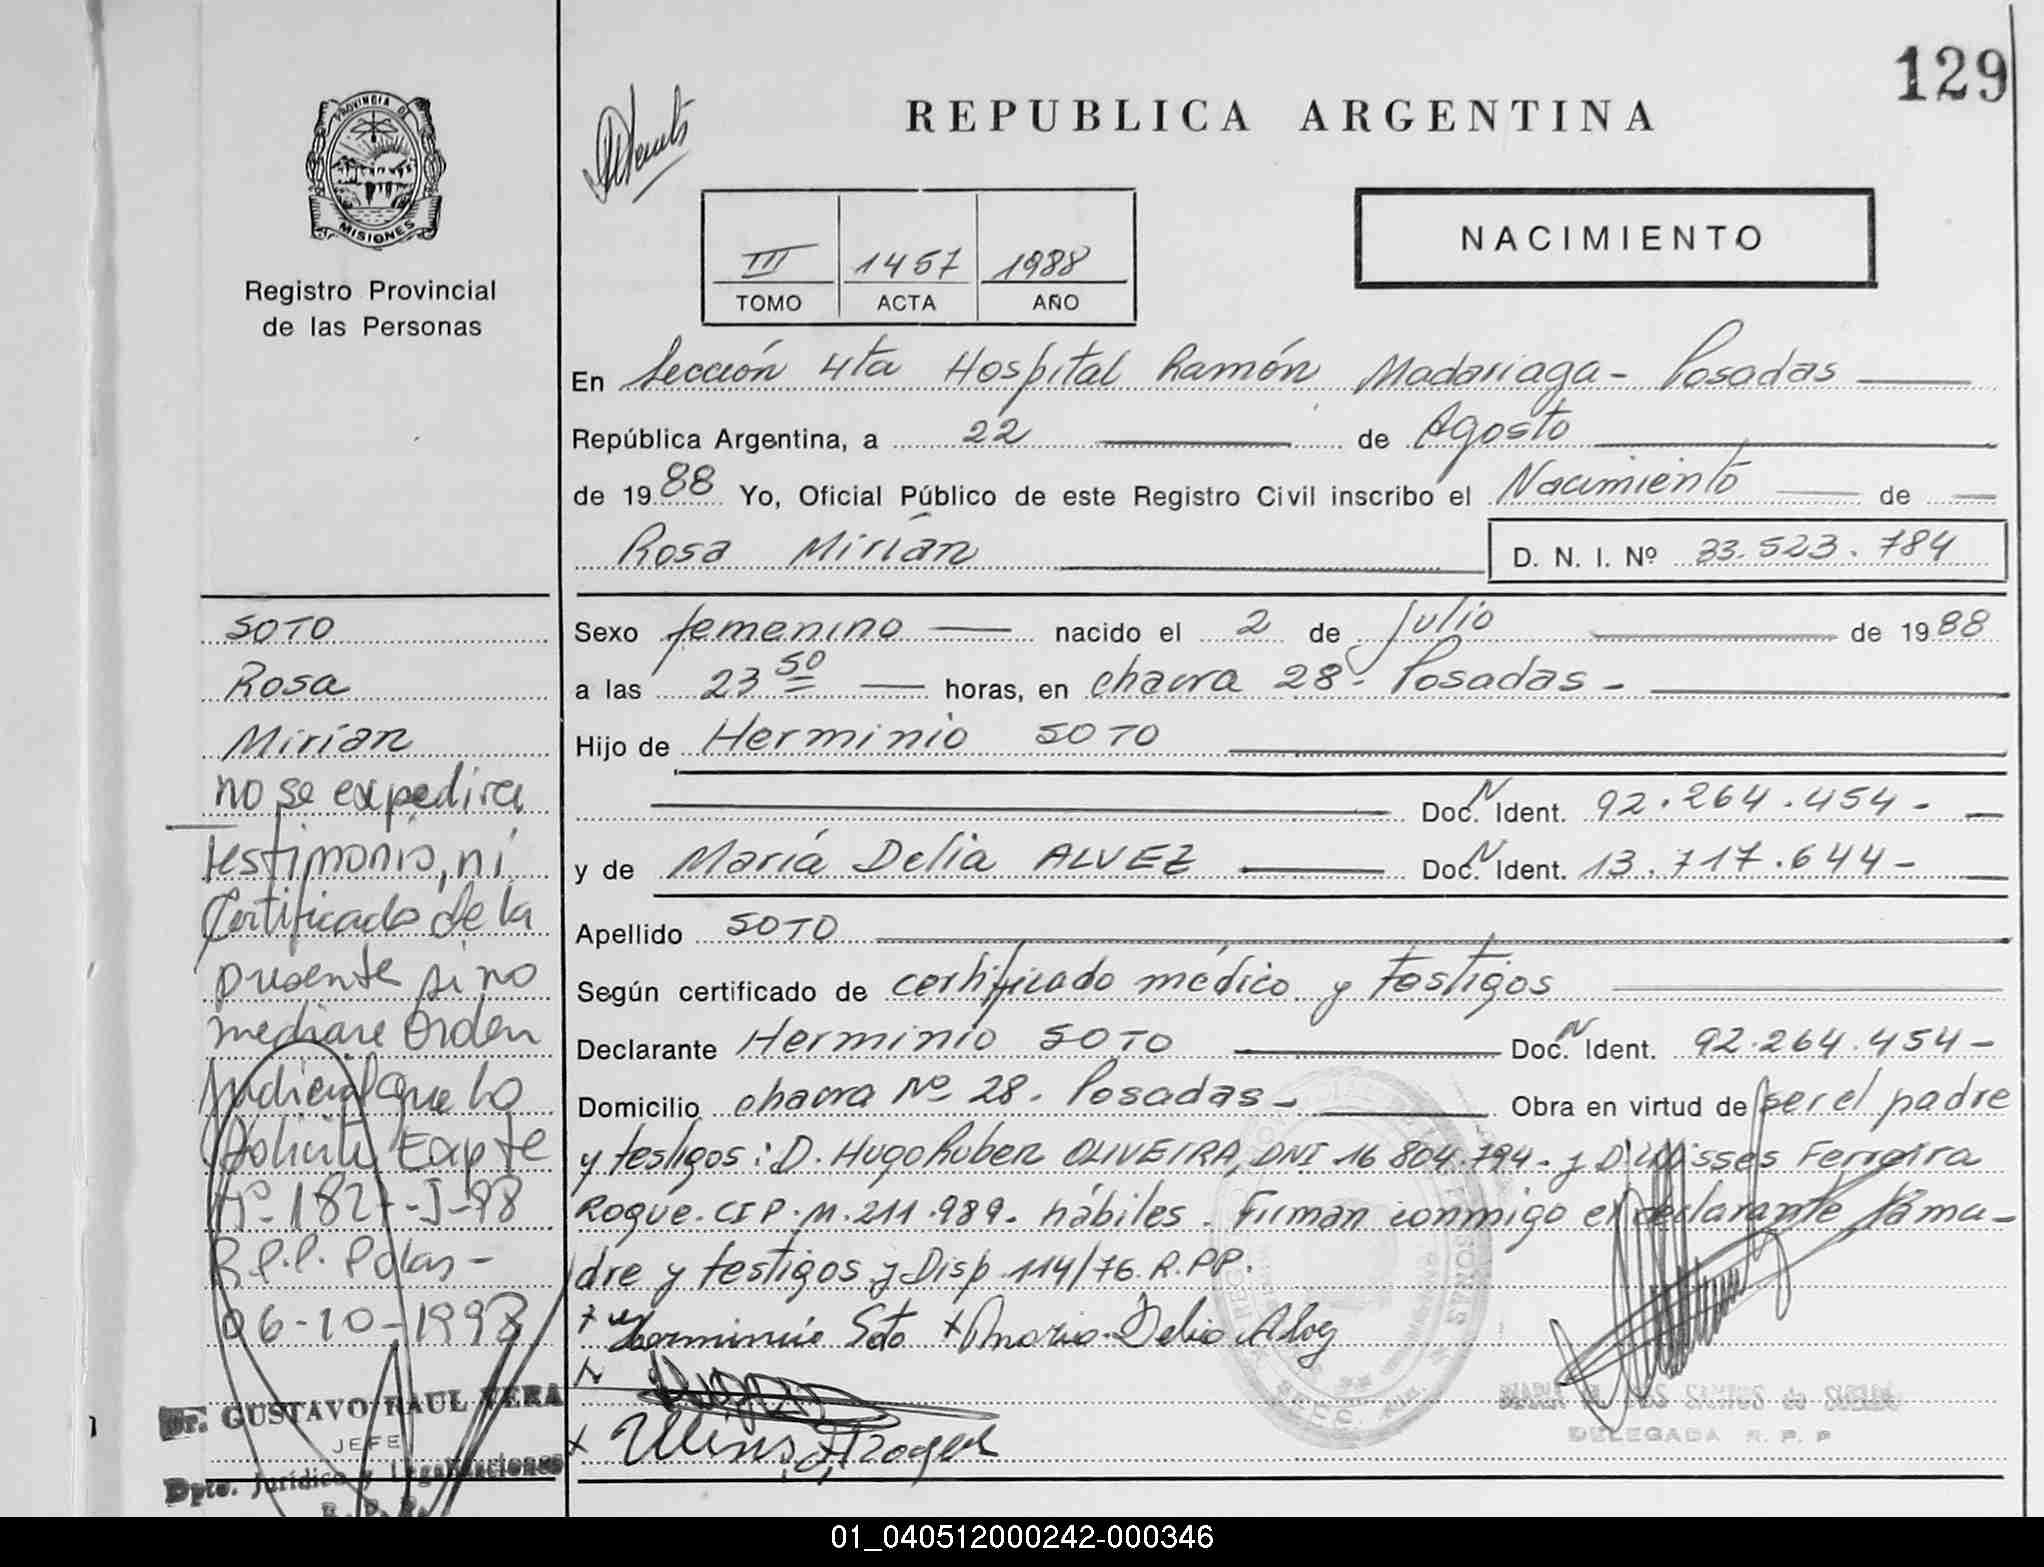 129
REPUBLICA ARGENTINA
PROVINCIA DE
MISIONES
Registro Provincial
de las Personas
NACIMIENTO
III 1457 1988
TOMO ACTA AÑO
En Sección 4ta Hospital Ramón Madariaga - Posadas
República Argentina, a 22 de Agosto
de 1988 Yo, Oficial Público de este Registro Civil inscribo el Nacimiento de
Rosa Mirian D. N. I. Nº 33.523.784
Sexo femenino nacido el 2 de Julio de 1988
a las 23 50 horas, en chacra 28 - Posadas -
Hijo de Herminio SOTO
Doc. N Ident. 92.264.454 -
y de María Delia ALVEZ Doc. N Ident. 13.717.644 -
Apellido SOTO
Según certificado de certificado médico y testigos
Declarante Herminio SOTO Doc. N Ident. 92.264.454 -
Domicilio chacra Nº 28. Posadas - Obra en virtud de ser el padre
y testigos: D. Hugo Ruben OLIVEIRA, DNI 16 804.794 - y D. Ulisses Ferreira
Roque. CIP. M. 211.989. hábiles. Firman conmigo el declarante la ma-
dre y testigos y Disp. 114/76. R.PP.
Herminio Soto x Maria Delia Alvez
SOTO
Rosa
Mirian
no se expedira
testimonio, ni
Certificado de la
presente si no
mediare orden
Judicial que lo
Solicite Expte
Nº 182 - J - 98
R.P.P. Pdas -
06-10-1998
Dr. GUSTAVO RAUL VERA
JEFE
Dpto. Jurídico y Legalizaciones
R. P. P.
DELEGADA R. P. P
01_040512000242-000346